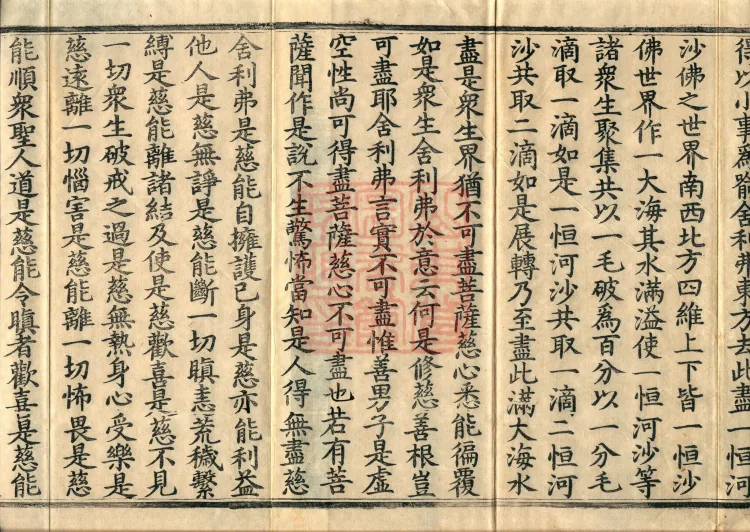 得以小事爲喻舍利弗東方去此盡一恒河
沙佛之世界南西北方四維上下皆一恒沙
佛世界作一大海其水滿溢使一恒河沙等
諸衆生聚集共以一毛破爲百分以一分毛
滴取一滴如是一恒河沙共取一滴二恒河
沙共取二滴如是展轉乃至盡此滿大海水
盡是衆生界猶不可盡菩薩慈心悉能徧覆
如是衆生舍利弗於意云何是修慈善根豈
可盡耶舍利弗言實不可盡惟善男子是虛
空性尚可得盡菩薩慈心不可盡也若有菩
薩聞作是說不生驚怖當知是人得無盡慈
舍利弗是慈能自擁護己身是慈亦能利益
他人是慈無諍是慈能斷一切瞋恚荒穢繫
縛是慈能離諸結及使是慈歡喜是慈不見
一切衆生破戒之過是慈無熱身心受樂是
慈遠離一切惱害是慈能離一切怖畏是慈
能順衆聖人道是慈能令瞋者歡喜是慈能